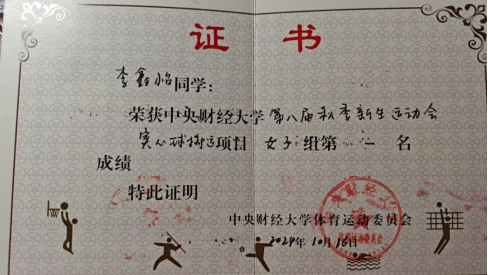 证 书
李鑫怡同学：
荣获中央财经大学第八届秋季新生运动会
实心球掷远项目 女子组第一名
成绩
特此证明
中央财经大学体育运动委员会
2024年10月16日